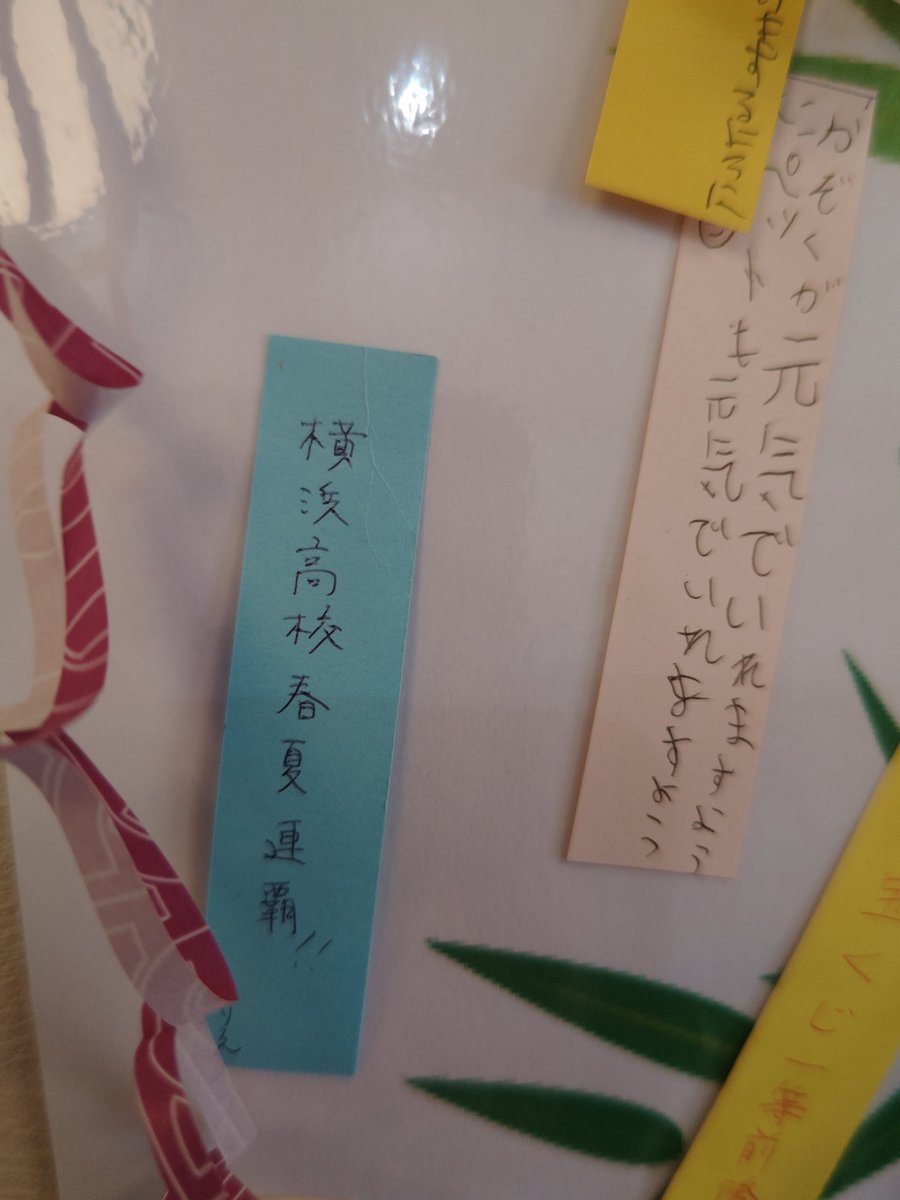 かぞくが元気でいれますよう
にペットも元気でいれますよう
横浜高校春夏連覇!!
りえ
宝くじ一等前